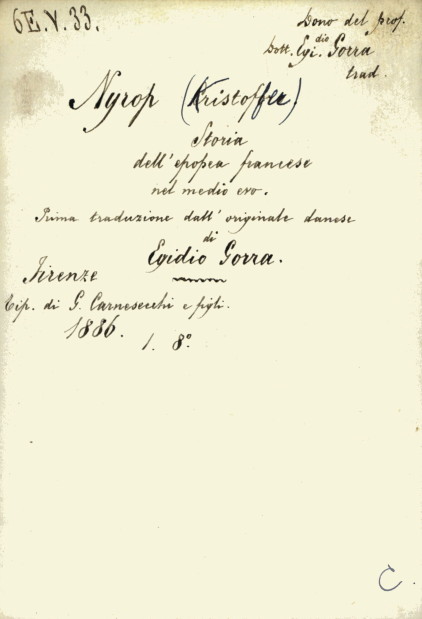 6E.V.33.
Dono del prof.
Dott. Egi.dio Gorra
trad.
Nyrop (Kristoffer)
Storia
dell'epopea francese
nel medio evo.
Prima traduzione dall'originale danese
di
Egidio Gorra.
Firenze
Tip. di G. Carnesecchi e figli.
1886.
1. 8°.
C.